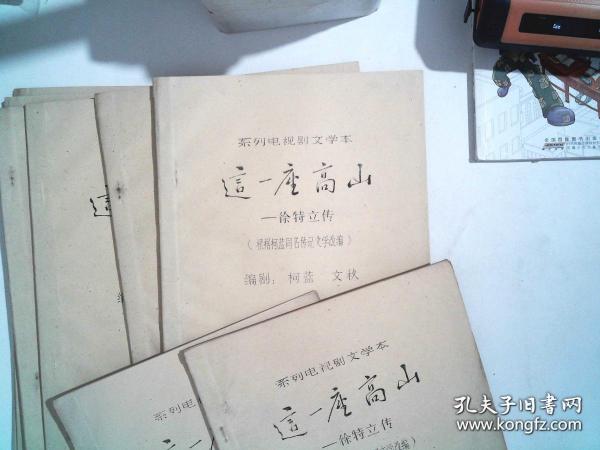 系列电视剧文学本
這一座高山
—徐特立传
(根据柯蓝同名传记文学改编)
编剧：柯蓝 文秋
這
编
系列电视剧文学本
這一座高山
—徐特立传
系列电
這一
孔夫子旧书网
www.kongfz.com